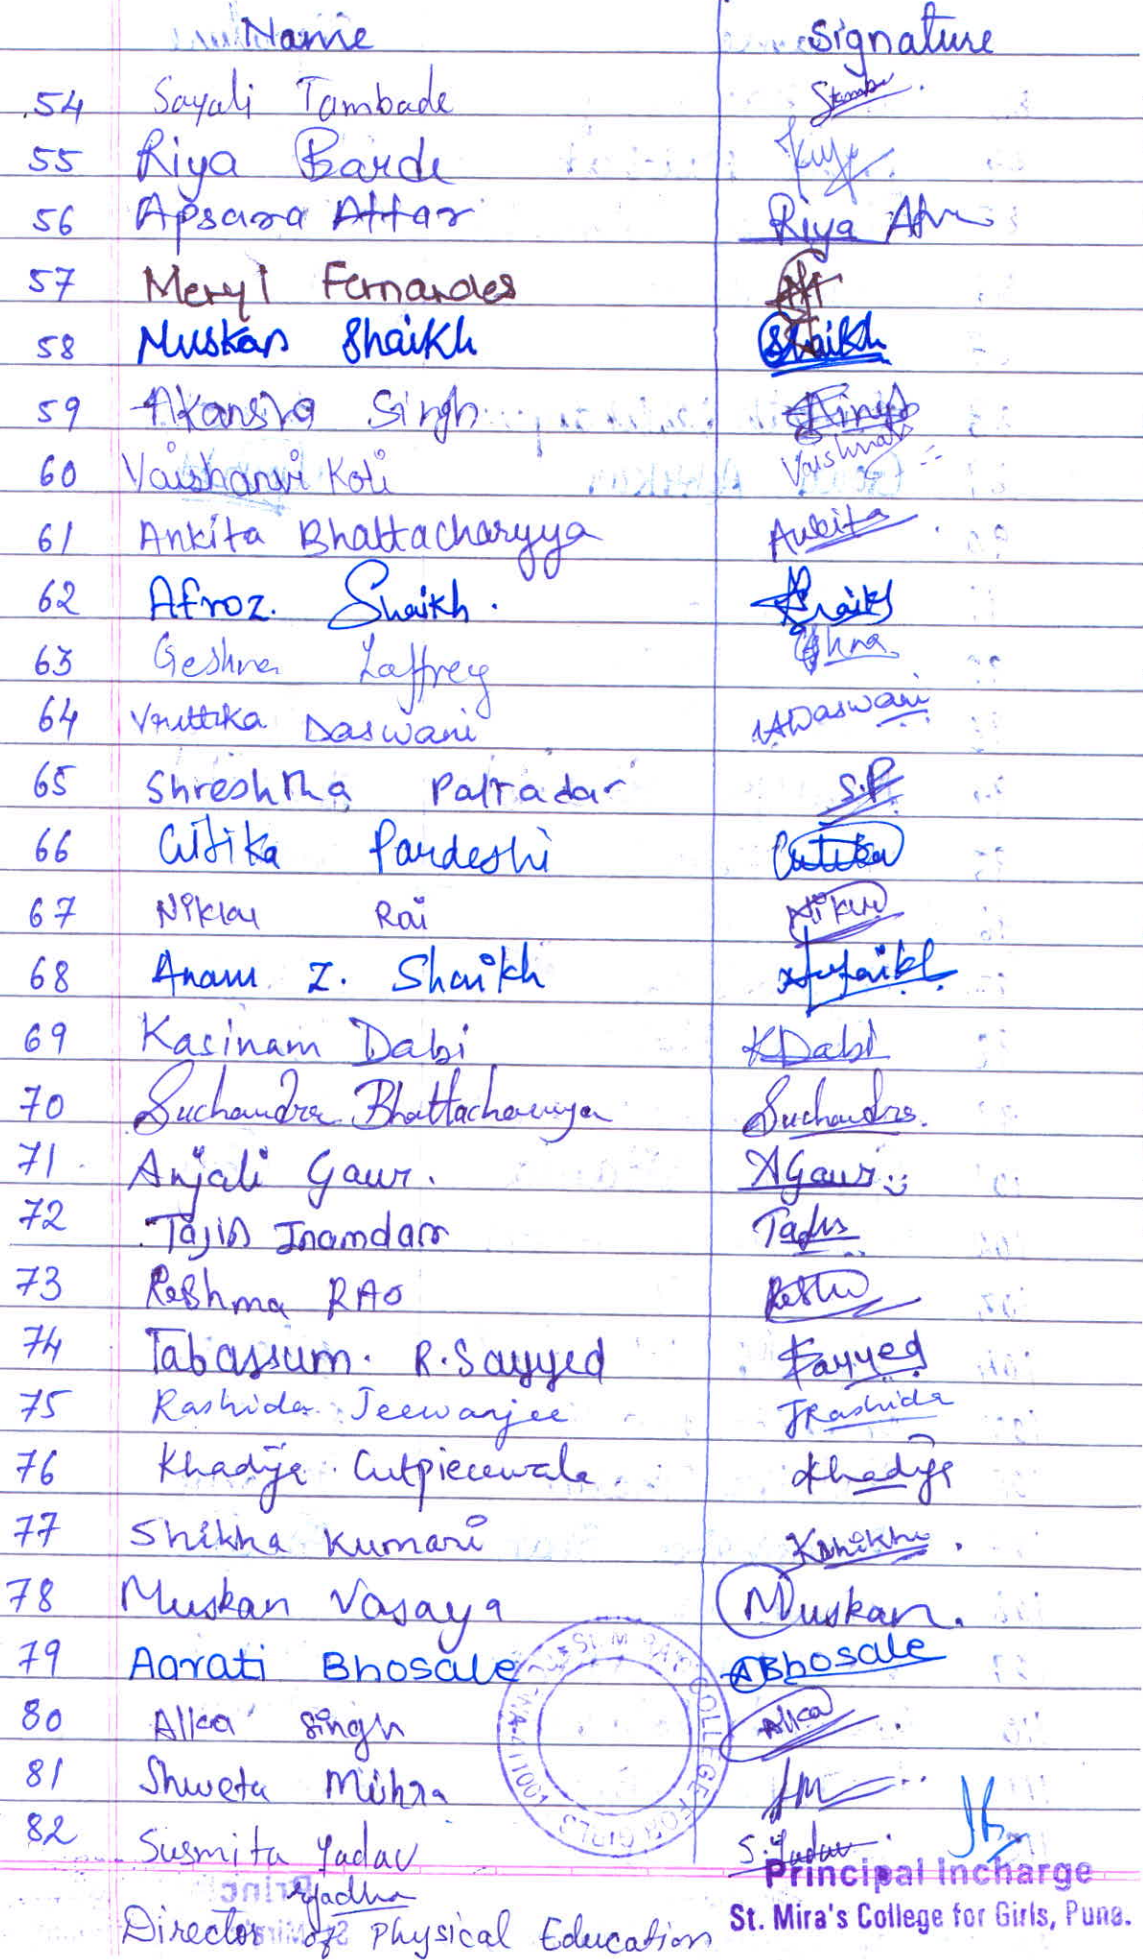 Name Signature
54 Sayali Tambade
55 Riya Barde
56 Apsara Attar Riya
57 Meryl Fernandes
58 Muskan Shaikh Shaikh
59 Akansha Singh
60 Vaishanvi Koli Vaishnavi
61 Ankita Bhattacharyya Ankita
62 Afroz. Shaikh. Shaikh
63 Geshna Zaffrey
64 Vruttika Daswani Daswani
65 Shreshtha Patradar S.P
66 Gitika Pardeshi
67 Nikku Rai
68 Anam Z. Shaikh
69 Kasinam Dabi KDabi
70 Suchandra Bhattacharyya Suchandra.
71 Anjali Gaur. AGaur
72 Tajin Inamdar
73 Reshma RAO
74 Tabassum. R. Sayyed Sayyed
75 Rashida Jeewanjee JRashida
76 Khadija Cutpiecewala Khadija
77 Shikha Kumari KShikha.
78 Muskan Vasaya Muskan.
79 Aarati Bhosale ABhosale
80 Alka Singh Alka
81 Shweta Mishra
82 Susmita Yadav S. Yadav
Principal Incharge
St. Mira's College for Girls, Pune.
Director of Physical Education